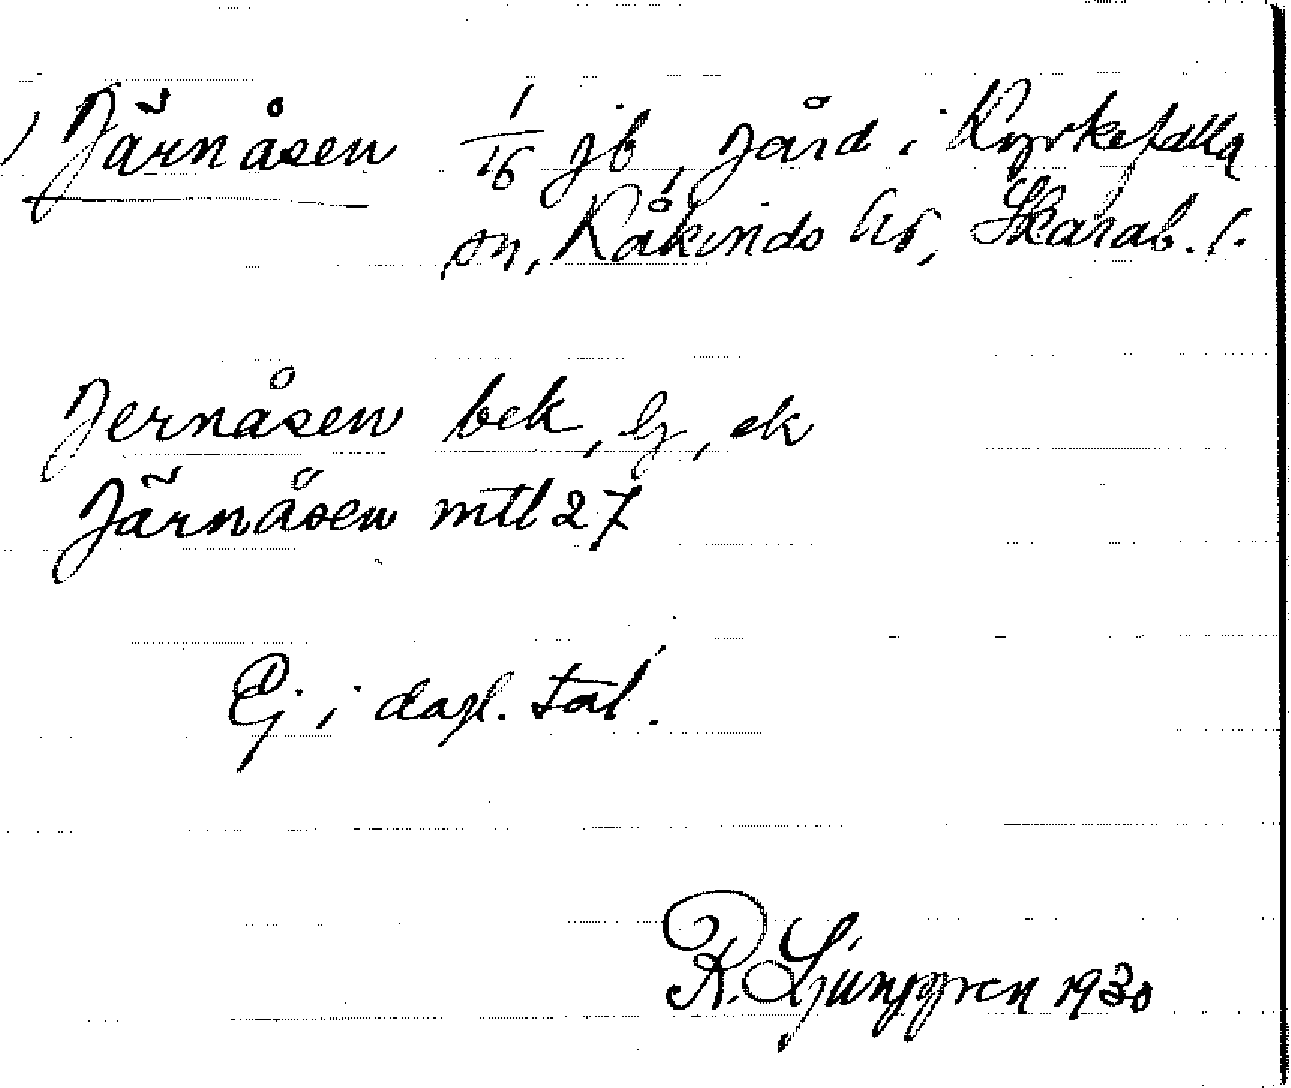 Järnåsen 1/16 jb, gård i Kyrkefalla
sn, Kåkinds hd, Skarab. l.
Jernåsen bek, lg, ek
Järnåsen mtl 27
Ej i dagl. tal.
R. Ljunggren 1930